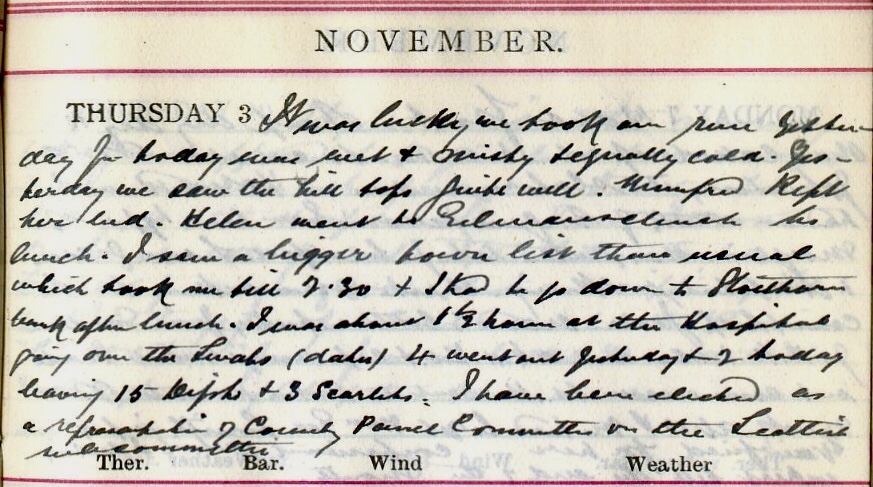 NOVEMBER.
THURSDAY 3 It was lucky we took our run yester-
day for today was wet & misty & equally cold. Yes-
terday we saw the hill tops quite well. Winifred kept
her bed. Helen went to for
lunch. I saw a bigger town list than usual
which took me till 2.30 & I had to go down to
bank after lunch. I was about 1½ hours at the Hospital
going over the Swabs (dates) 4 went out yesterday & 2 today
leaving 15 Diphs & 3 Scarlets. I have been elected as
a representative of County Panel Committee on the Scottish
committee
Ther. Bar. Wind Weather